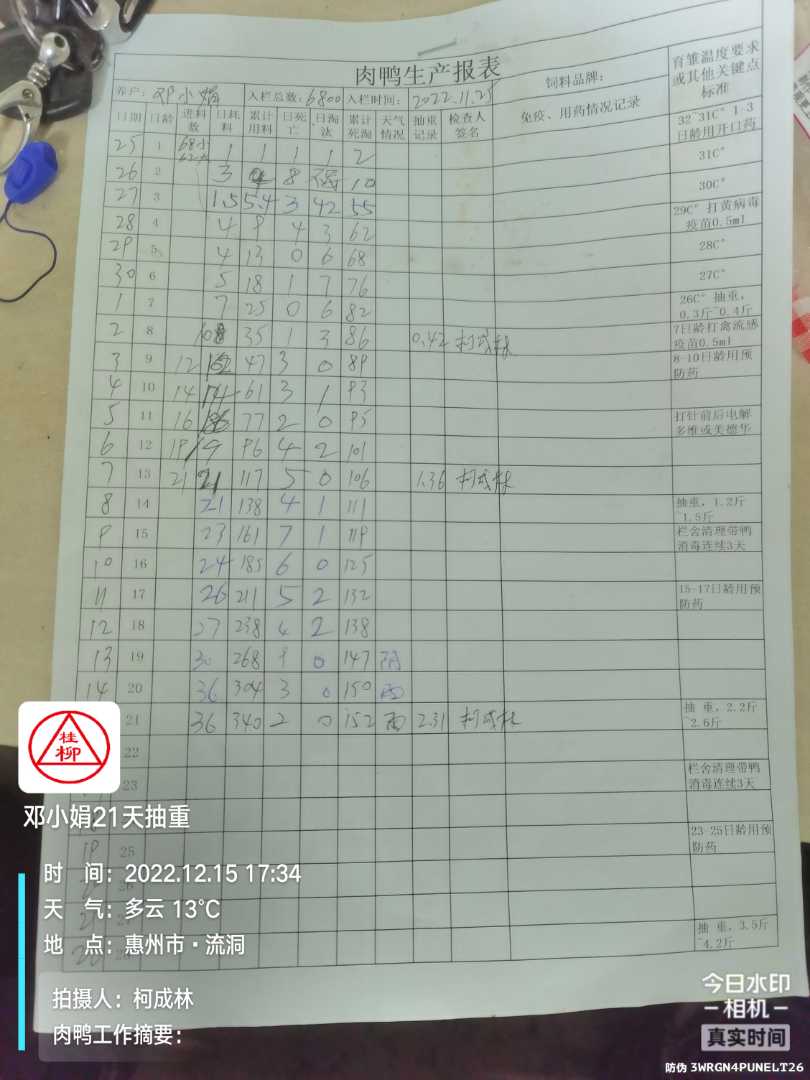 肉鸭生产报表
养户：邓小娟 入栏总数：6800 入栏时间：2022.11.25 饲料品牌：
育雏温度要求或其他关键点标准
日期 日龄 进料数 日耗料 累计用料 日死亡 日淘汰 累计死淘 天气情况 抽重记录 检查人签名 免疫、用药情况记录
25 1 1 1 1 1 2 32~31C° 1-3日龄用开口药
26 2 3 8 10 31C°
27 3 1.5 5.4 3 42 55 30C°
28 4 4 9 4 3 62 29C° 打黄病毒疫苗0.5ml
29 5 4 13 0 6 68 28C°
30 6 5 18 1 7 76 27C°
1 7 7 25 0 6 82 26C° 抽重，0.3斤~0.4斤
2 8 35 1 3 86 0.42 柯成林 7日龄打禽流感疫苗0.5ml
3 9 12 12 47 3 0 89 8-10日龄用预防药
4 10 14 14 61 3 1 93
5 11 16 16 77 2 0 95 打针前后电解多维或美德华
6 12 19 19 96 4 2 101
7 13 21 21 117 5 0 106 1.36 柯成林
8 14 21 138 4 1 111 抽重，1.2斤~1.5斤
9 15 23 161 7 1 119 栏舍清理带鸭消毒连续3天
10 16 24 185 6 0 125
11 17 26 211 5 2 132 15-17日龄用预防药
12 18 27 238 4 2 138
13 19 30 268 9 0 147 阴
14 20 36 304 3 0 150 雨
21 36 340 2 0 152 雨 2.31 柯成林 抽重，2.2斤~2.6斤
22
23 栏舍清理带鸭消毒连续3天
23-25日龄用预防药
19 25
26
21
抽重，3.5斤~4.2斤
桂柳
邓小娟21天抽重
时 间：2022.12.15 17:34
天 气：多云 13℃
地 点：惠州市·流洞
拍摄人：柯成林
肉鸭工作摘要：
今日水印
-相机-
真实时间
防伪 3WRGN4PUNELT26